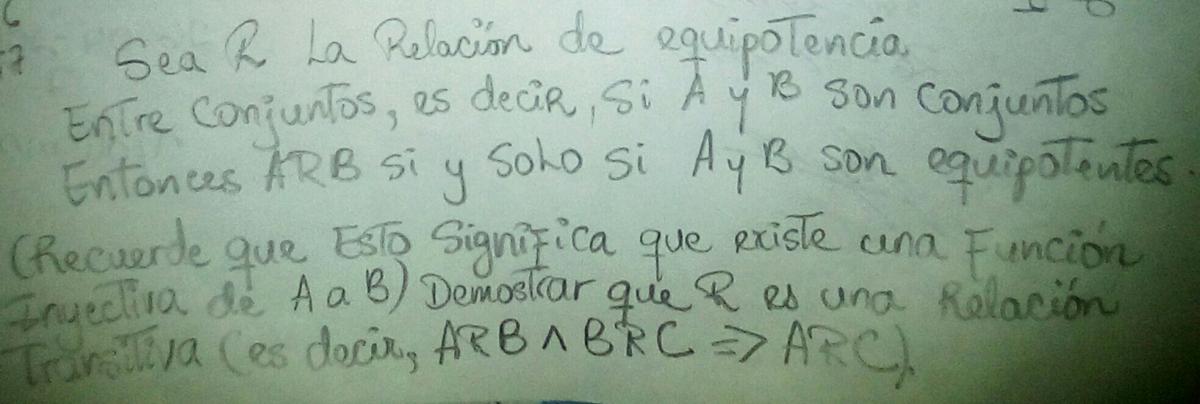 Sea R La Relación de equipotencia
Entre Conjuntos, es decir, Si A y B son Conjuntos
Entonces ARB Si y Solo Si A y B son equipotentes.
(Recuerde que Esto Significa que existe una Función
Inyectiva de A a B) Demostrar que R es una Relación
Transitiva (es decir, ARB ∧ BRC => ARC).